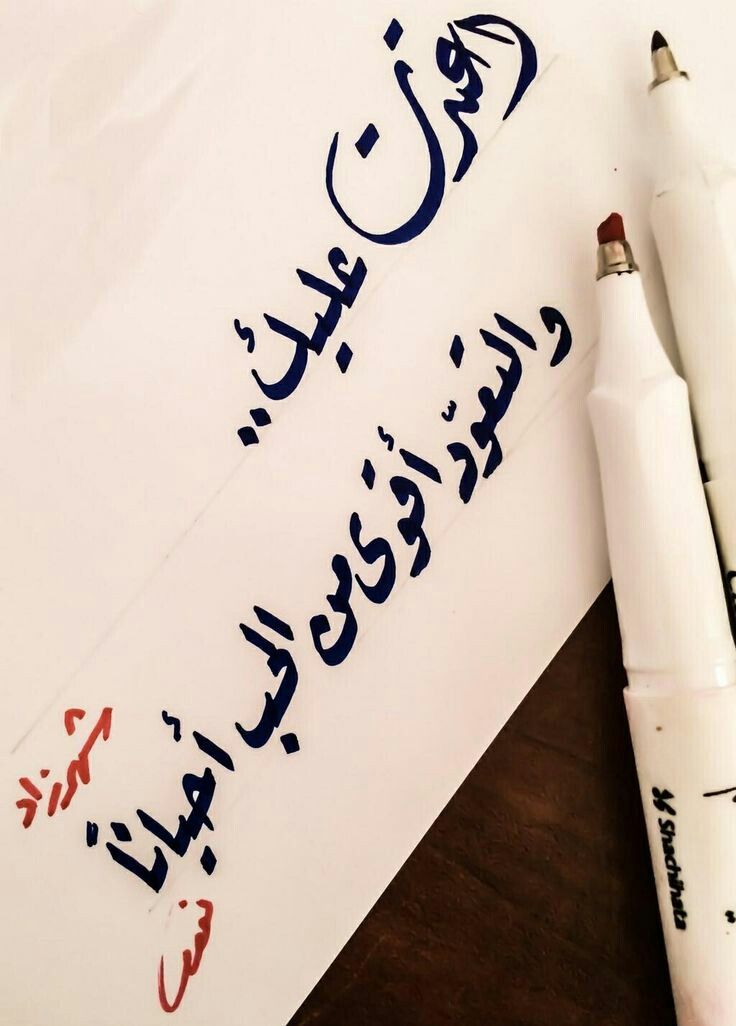 اعتدت عليك..
والتعوّد أقوى من الحب أحياناً
شهرزاد
Shachihata